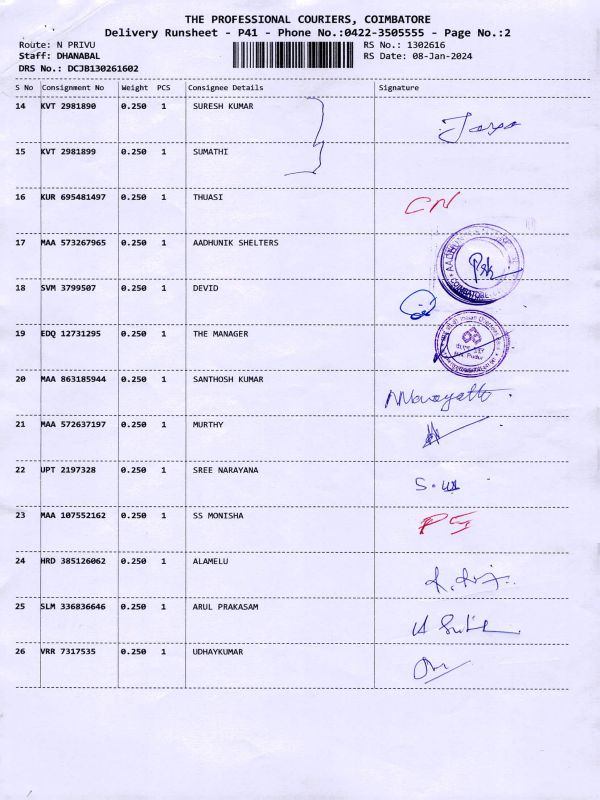 THE PROFESSIONAL COURIERS, COIMBATORE
Delivery Runsheet - P41 - Phone No.:0422-3505555 - Page No.:2
Route: N PRIVU RS No.: 1302616
Staff: DHANABAL RS Date: 08-Jan-2024
DRS No.: DCJB130261602
S No Consignment No Weight PCS Consignee Details Signature
14 KVT 2981890 0.250 1 SURESH KUMAR
15 KVT 2981899 0.250 1 SUMATHI
16 KUR 695481497 0.250 1 THUASI CN
17 MAA 573267965 0.250 1 AADHUNIK SHELTERS
18 SVM 3799507 0.250 1 DEVID
19 EDQ 12731295 0.250 1 THE MANAGER
20 MAA 863185944 0.250 1 SANTHOSH KUMAR
21 MAA 572637197 0.250 1 MURTHY
22 UPT 2197328 0.250 1 SREE NARAYANA
23 MAA 107552162 0.250 1 SS MONISHA
24 HRD 385126062 0.250 1 ALAMELU
25 SLM 336836646 0.250 1 ARUL PRAKASAM
26 VRR 7317535 0.250 1 UDHAYKUMAR